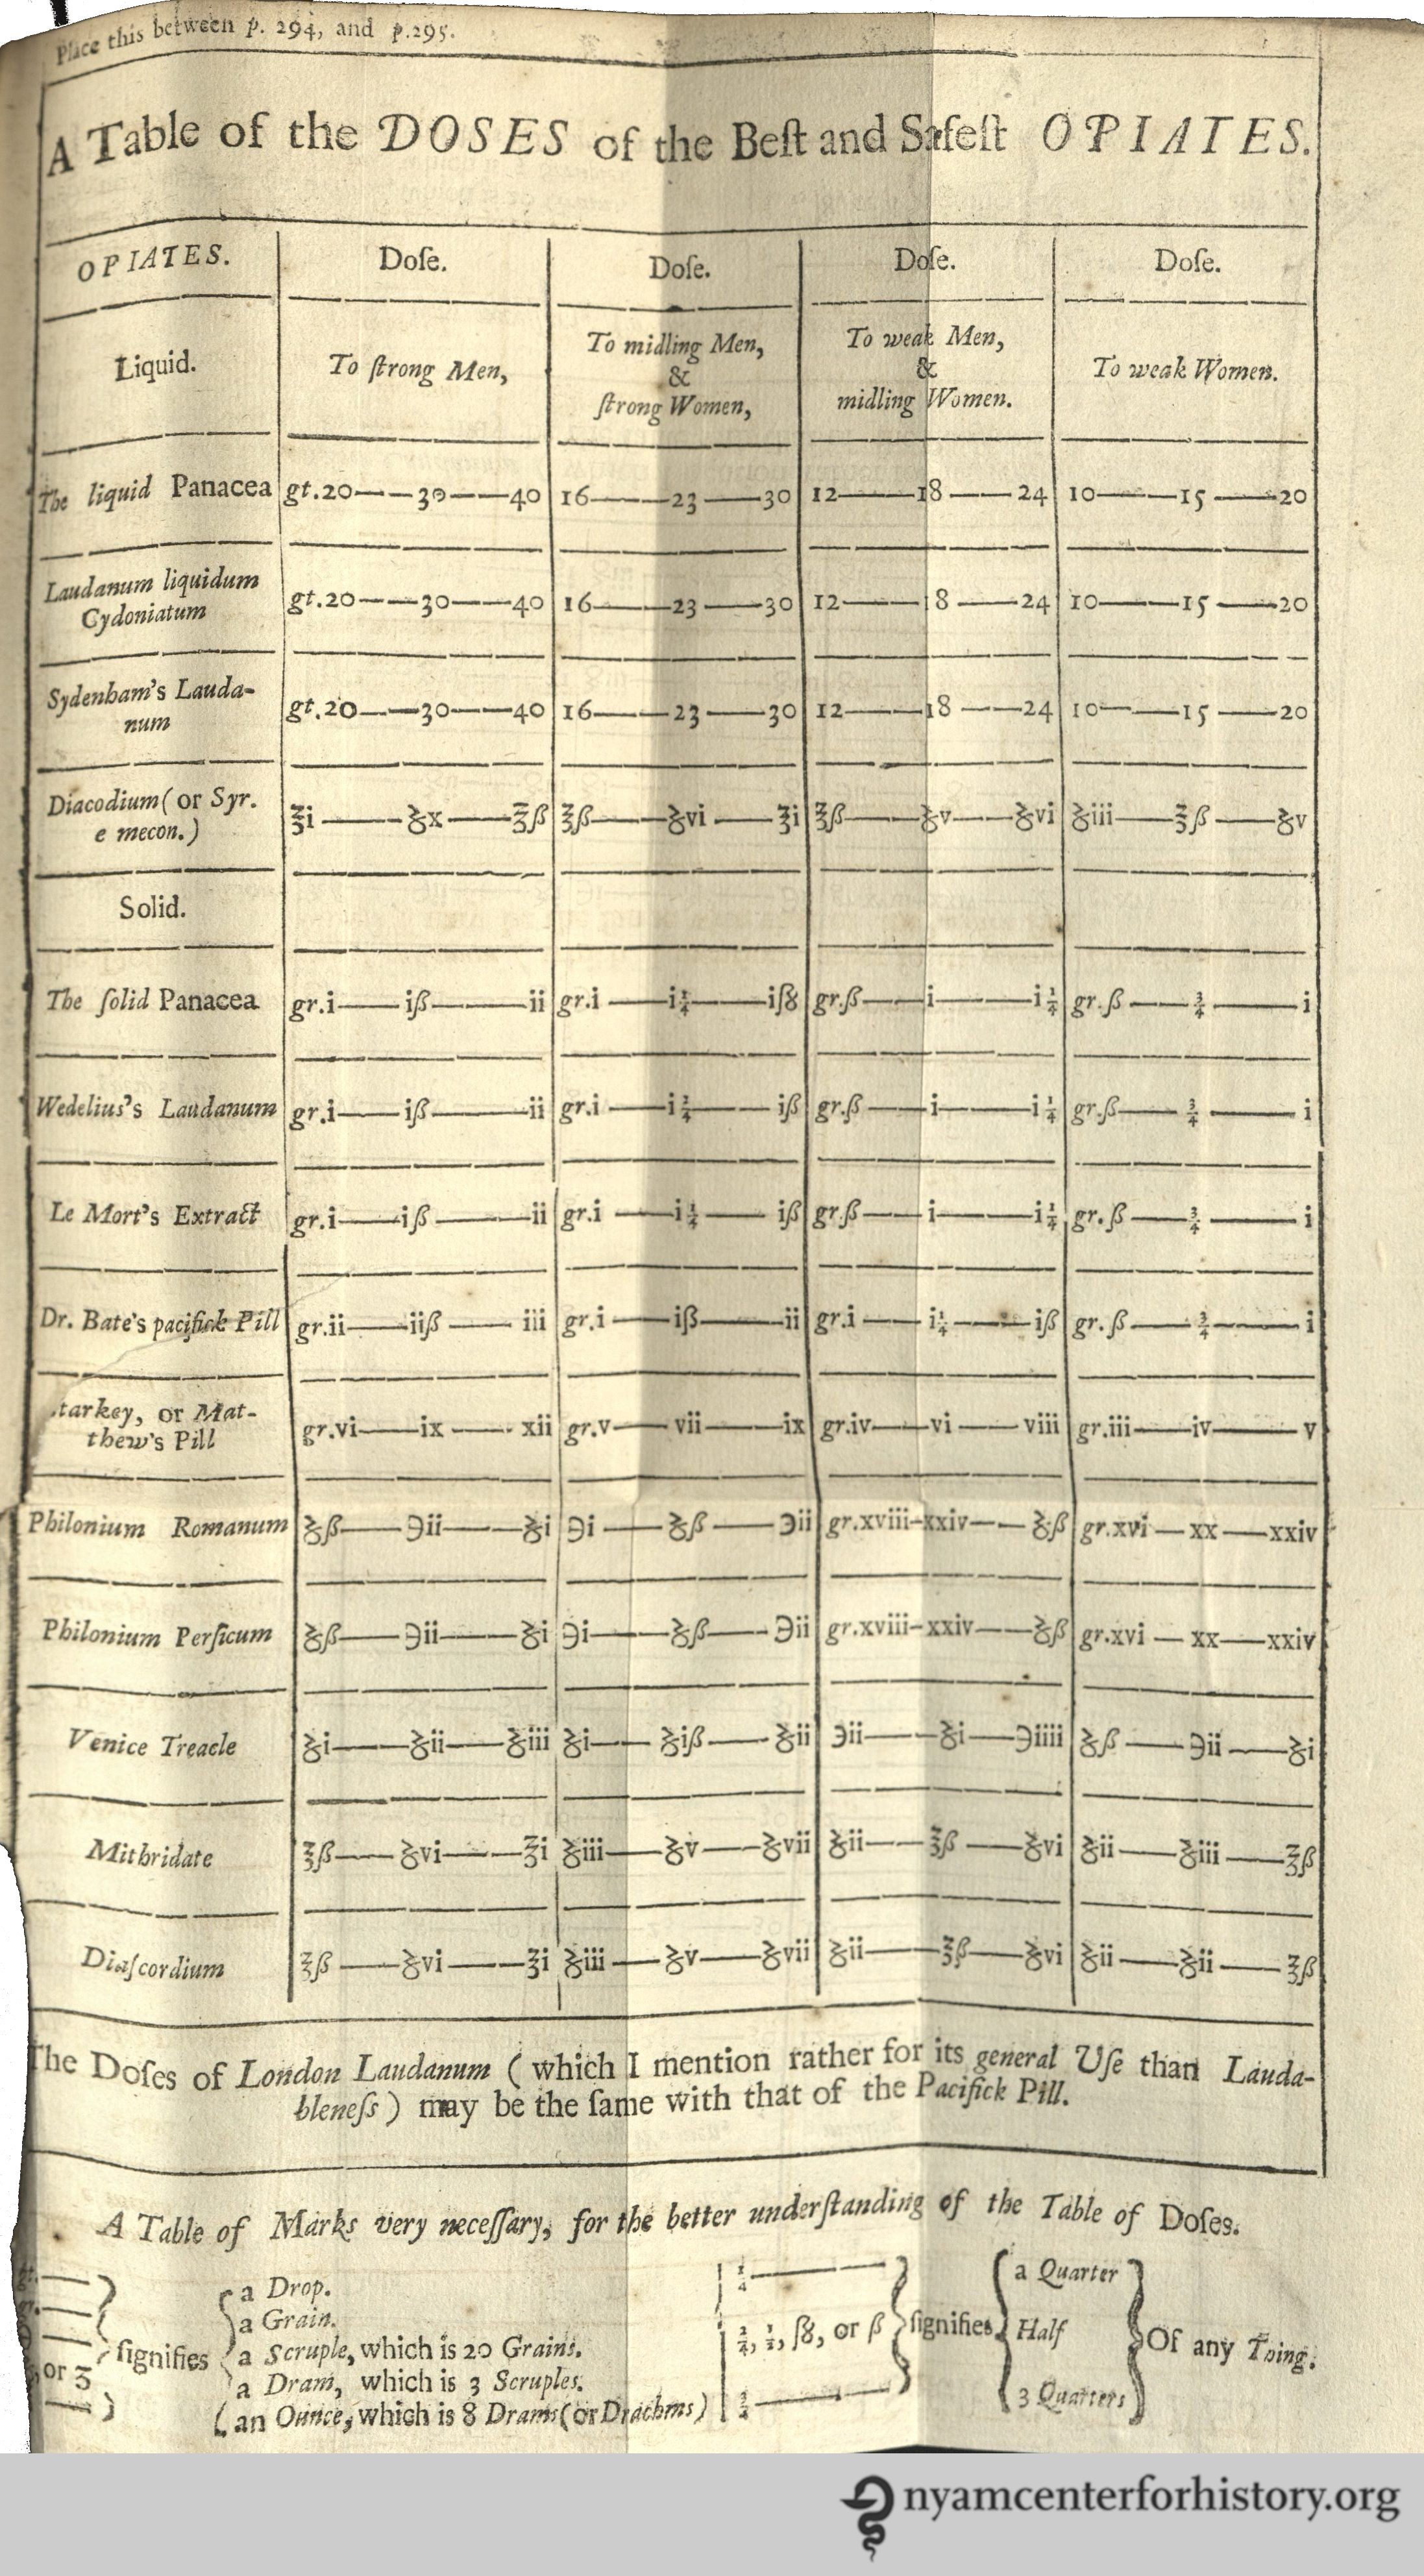 Place this between p. 294, and p.295.
A Table of the DOSES of the Beſt and Safeſt OPIATES.
OPIATES. Doſe. Doſe. Doſe. Doſe.
Liquid. To ſtrong Men, To midling Men, & ſtrong Women, To weak Men, & midling Women. To weak Women.
The liquid Panacea gt.20——30——40 16——23——30 12——18——24 10——15——20
Laudanum liquidum Cydoniatum gt.20——30——40 16——23——30 12——18——24 10——15——20
Sydenham's Lauda-
num gt.20——30——40 16——23——30 12——18——24 10——15——20
Diacodium (or Syr.
e mecon.) ℥i——ʒx——℥ß ℥ß——ʒvi——℥i ℥ß——ʒv——ʒvi ʒiii——℥ß——ʒv
Solid.
The ſolid Panacea gr.i——iß——ii gr.i——i¼——iſ8 gr.ß——i——i¼ gr.ß——¾——i
Wedelius's Laudanum gr.i——iß——ii gr.i——i¼——iß gr.ß——i——i¼ gr.ß——¾——i
Le Mort's Extract gr.i——iß——ii gr.i——i¼——iß gr.ß——i——i¼ gr.ß——¾——i
Dr. Bate's pacifick Pill gr.ii——iiß——iii gr.i——iß——ii gr.i——i¼——iß gr.ß——¾——i
tarkey, or Mat-
thew's Pill gr.vi——ix——xii gr.v——vii——ix gr.iv——vi——viii gr.iii——iv——v
Philonium Romanum ʒß——℈ii——ʒi ℈i——ʒß——℈ii gr.xviii–xxiv——ʒß gr.xvi—xx—xxiv
Philonium Perſicum ʒß——℈ii——ʒi ℈i——ʒß——℈ii gr.xviii–xxiv——ʒß gr.xvi—xx—xxiv
Venice Treacle ʒi——ʒii——ʒiii ʒi——ʒiß——ʒii ℈ii——ʒi——℈iiii ʒß——℈ii——ʒi
Mithridate ℥ß——ʒvi——℥i ʒiii——ʒv——ʒvii ʒii——℥ß——ʒvi ʒii——ʒiii——℥ß
Diaſcordium ℥ß——ʒvi——℥i ʒiii——ʒv——ʒvii ʒii——℥ß——ʒvi ʒii——ʒii——℥ß
The Doſes of London Laudanum (which I mention rather for its general Uſe than Lauda-
bleneſs) may be the ſame with that of the Pacifick Pill.
A Table of Marks very neceſſary, for the better underſtanding of the Table of Doſes.
ſignifies
a Drop.
a Grain.
a Scruple, which is 20 Grains.
or ʒ a Dram, which is 3 Scruples.
an Ounce, which is 8 Drams (or Drachms)
¼ ſignifies a Quarter
½, ſ8, or ß Half Of any Thing.
3 Quarters
nyamcenterforhistory.org